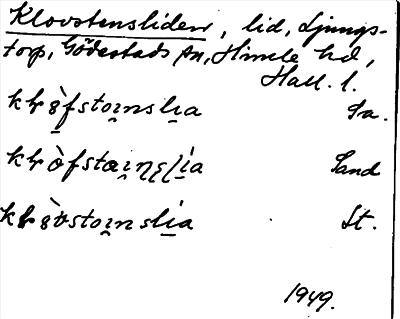 Klovstensliden, lid, Ljungs-
torp, Gödestads sn, Himle hd,
Hall. l.
kɬò̤fstoi̯nsli̱a Sa.
kɬòfstai̯ɳʂɭí̱a Sand
kɬò̤vstoi̯nslí̱a St.
1949.